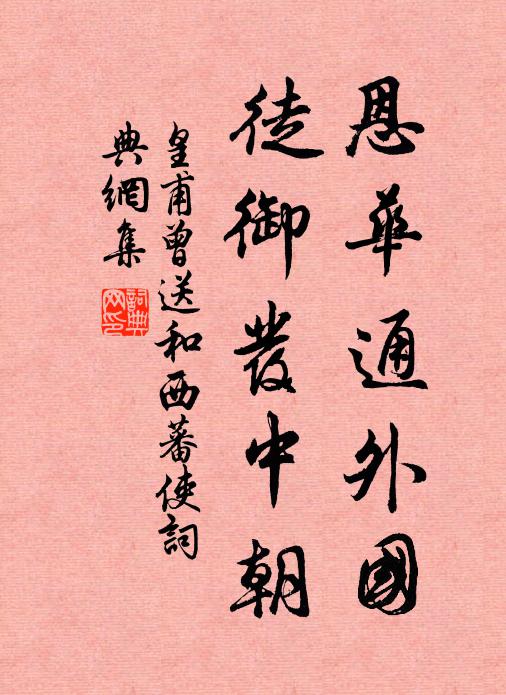 恩華通外國
徒御發中朝
皇甫曾送和西蕃使詞
典網集
詞典網印